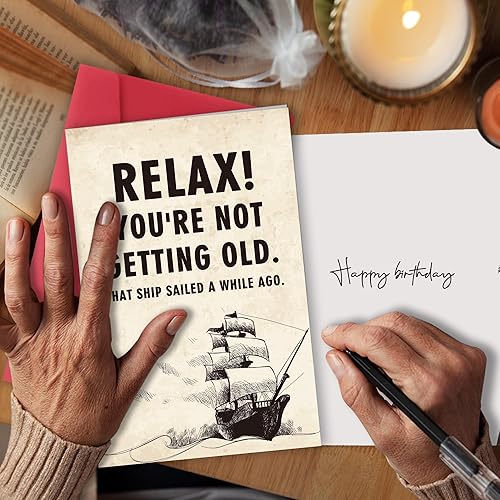 RELAX!
YOU'RE NOT
GETTING OLD.
THAT SHIP SAILED A WHILE AGO.
Happy birthday